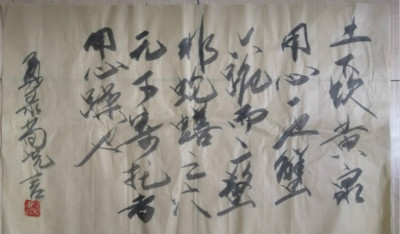 土下饮黄泉
用心一也蟹
八跪而二螯
非蛇蟮之穴
无可寄托者
用心躁也